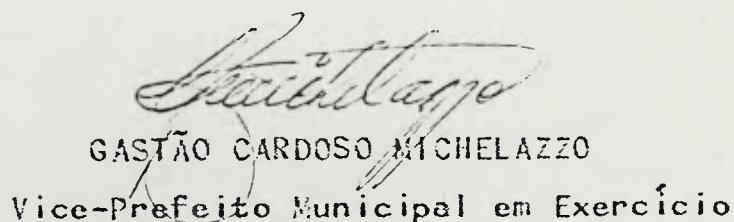 GASTÃO CARDOSO MICHELAZZO
Vice-Prefeito Municipal em Exercício